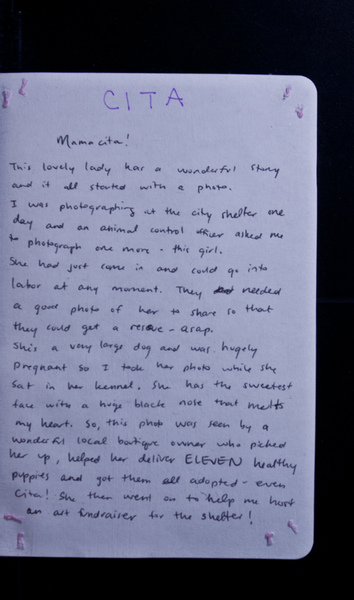 CITA
Mamacita!
This lovely lady has a wonderful story
and it all started with a photo.
I was photographing at the city shelter one
day and an animal control officer asked me
to photograph one more - this girl.
She had just come in and could go into
labor at any moment. They needed
a good photo of her to share so that
they could get a rescue - asap.
She's a very large dog and was hugely
pregnant so I took her photo while she
sat in her kennel. She has the sweetest
face with a huge black nose that melts
my heart. So, this photo was seen by a
wonderful local boutique owner who picked
her up, helped her deliver ELEVEN healthy
puppies and got them all adopted - even
Cita! She then went on to help me host
an art fundraiser for the shelter!